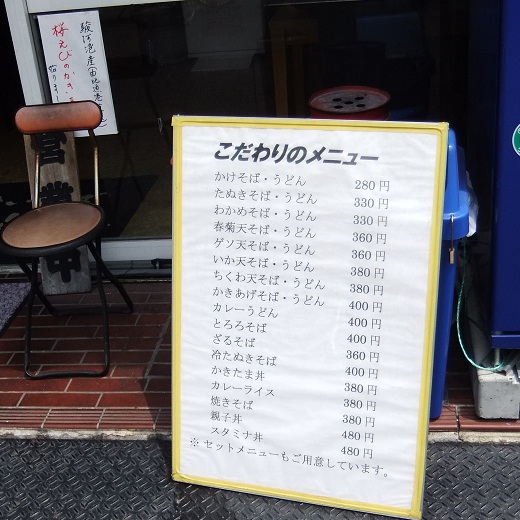 駿河湾産(由比漁港
桜えびのかき
営業中
こだわりのメニュー
かけそば・うどん 280円
たぬきそば・うどん 330円
わかめそば・うどん 330円
春菊天そば・うどん 360円
ゲソ天そば・うどん 360円
いか天そば・うどん 380円
ちくわ天そば・うどん 380円
かきあげそば・うどん 400円
カレーうどん 400円
とろろそば 400円
ざるそば 360円
冷たぬきそば 400円
かきたま丼 380円
カレーライス 380円
焼きそば 380円
親子丼 480円
スタミナ丼 480円
※セットメニューもご用意しています。